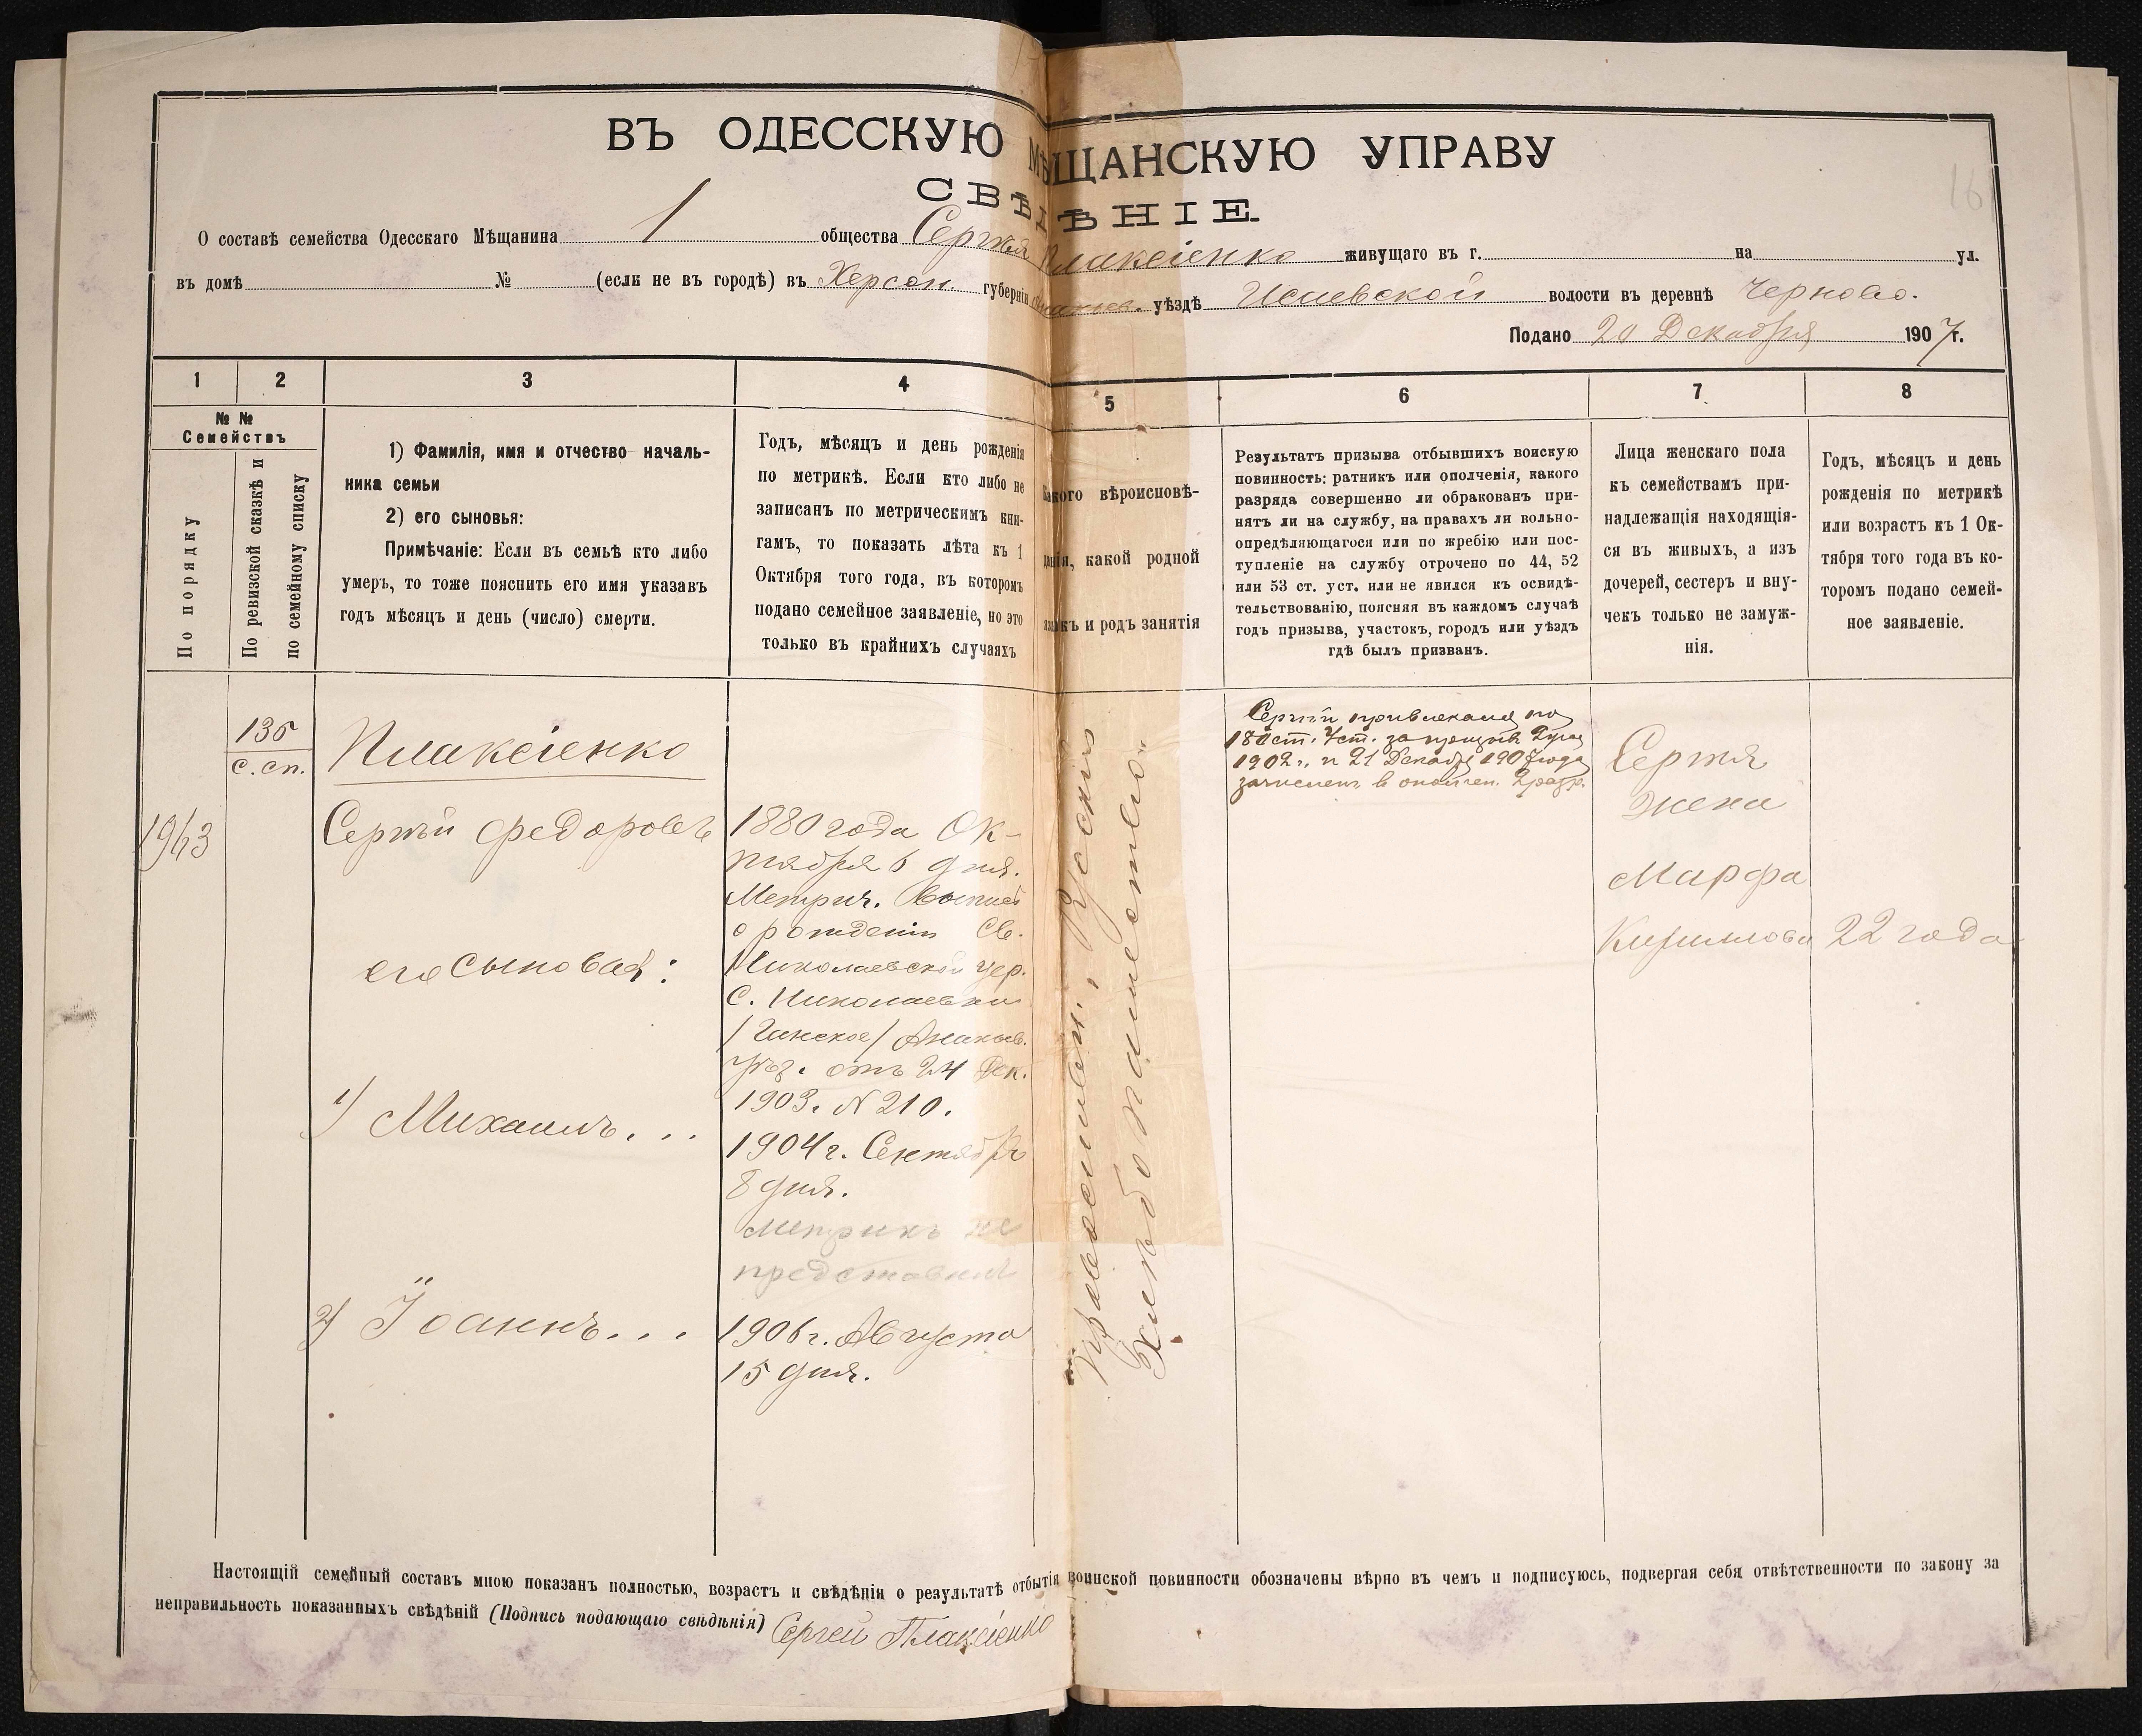 ВЪ ОДЕССКУЮ МѢЩАНСКУЮ УПРАВУ
СВѢДѢНІЕ.
16
О составѣ семейства Одесскаго Мѣщанина 1 общества Сергѣя Плаксіенко живущаго въ г. на ул.
въ домѣ № (если не въ городѣ) въ Херсон. губерніи Ананьев. уѣздѣ Исаевской волости въ деревнѣ Черново.
Подано 20 Декабря 1907 г.
1 2 3 4 5 6 7 8
№ №
Семействъ
По порядку
По ревизской сказкѣ и
по семейному списку
1) Фамилія, имя и отчество началь-
ника семьи
2) его сыновья:
Примѣчаніе: Если въ семьѣ кто либо
умеръ, то тоже пояснить его имя указавъ
годъ мѣсяцъ и день (число) смерти.
Годъ, мѣсяцъ и день рожденія
по метрикѣ. Если кто либо не
записанъ по метрическимъ кни-
гамъ, то показать лѣта къ 1
Октября того года, въ которомъ
подано семейное заявленіе, но это
только въ крайнихъ случаяхъ
Какого вѣроисповѣ-
данія, какой родной
языкъ и родъ занятія
Результатъ призыва отбывшихъ воискую
повинность: ратникъ или ополченія, какого
разряда совершенно ли обракованъ при-
нятъ ли на службу, на правахъ ли вольно-
опредѣляющагося или по жребію или пос-
тупленіе на службу отрочено по 44, 52
или 53 ст. уст. или не явился къ освидѣ-
тельствованію, поясняя въ каждомъ случаѣ
годъ призыва, участокъ, городъ или уѣздъ
гдѣ былъ призванъ.
Лица женскаго пола
къ семействамъ при-
надлежащія находящія-
ся въ живыхъ, а изъ
дочерей, сестеръ и вну-
чекъ только не замуж-
нія.
Годъ, мѣсяцъ и день
рожденія по метрикѣ
или возрастъ къ 1 Ок-
тября того года въ ко-
торомъ подано семей-
ное заявленіе.
135
с. сп.
1943
Плаксіенко
Сергѣй Федоровъ
его сыновья:
1) Михаилъ...
2) Іоаннъ...
1880 года Ок-
тября 6 дня.
Метрич. выпись
о рожденіи Св.
Николаевской цер.
С. Николаевки
/Ганское/ Ананьев.
уѣз. отъ 24 Дек.
1903. N 210.
1904 г. Сентября
8 дня.
метрикъ не
представил
1906 г. Августа
15 дня.
Православн., Русскій
Хлѣбопашество.
Сергѣй привлекался по
180 ст. Уст. за призывъ
1902 г. и 21 Декабр 1907 года
зачислен в ополчен. 2 разр.
Сергѣя
жена
Марфа
Кириллова 22 года
Настоящій семейный составъ мною показанъ полностью, возрастъ и свѣдѣнія о результатѣ отбытія воинской повинности обозначены вѣрно въ чемъ и подписуюсь, подвергая себя отвѣтственности по закону за
неправильность показанныхъ свѣдѣній (Подпись подающаго свѣдѣнія) Сергей Плаксіенко